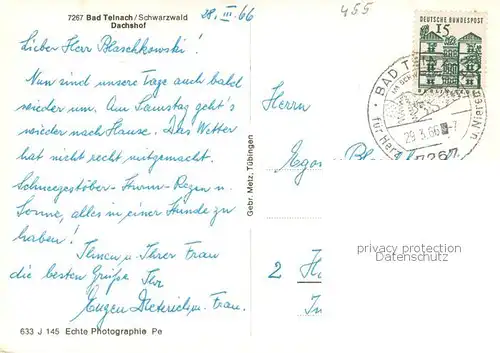 7267 Bad Teinach/Schwarzwald
Dachshof
28. III. 66
455
Lieber Herr Blaschkowski!
Nun sind unsere Tage auch bald
wieder um. Am Samstag geht's
wieder nach Hause. Das Wetter
hat nicht recht mitgemacht.
Schneegestöber-Sturm-Regen u.
Sonne, alles in einer Stunde zu
haben!
Ihnen u. Ihrer Frau
die besten Grüße Ihr
Eugen Dieterich u. Frau.
633 J 145 Echte Photographie Pe
Gebr. Metz, Tübingen
DEUTSCHE BUNDESPOST
15
BAD T
29.3.66-7
7267
für Herz
u. Nerven
Herrn
Egon Bl
2 H
privacy protection
Datenschutz